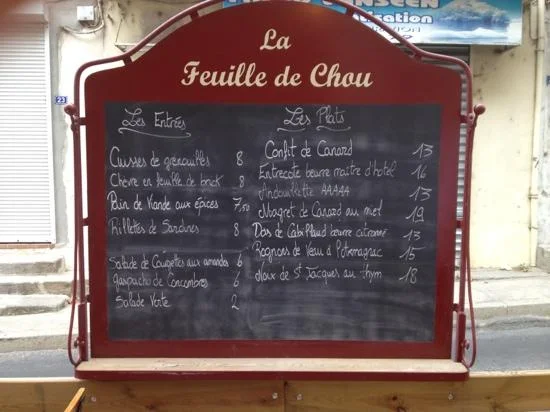 La
Feuille de Chou
23
Les Entrées
Cuisses de grenouilles 8
Chèvre en feuille de brick 8
Pain de Viande aux épices 7,50
Rillettes de Sardines 8
Salade de Courgettes aux amandes 6
gaspacho de Concombres 6
Salade Verte 2
Les Plats
Confit de Canard 13
Entrecôte beurre maitre d'hotel 16
Andouillette AAAAA 13
Magret de Canard au miel 19
Dos de Cabillaud beurre citronné 13
Rognons de Veau 15
Noix de St Jacques au thym 18